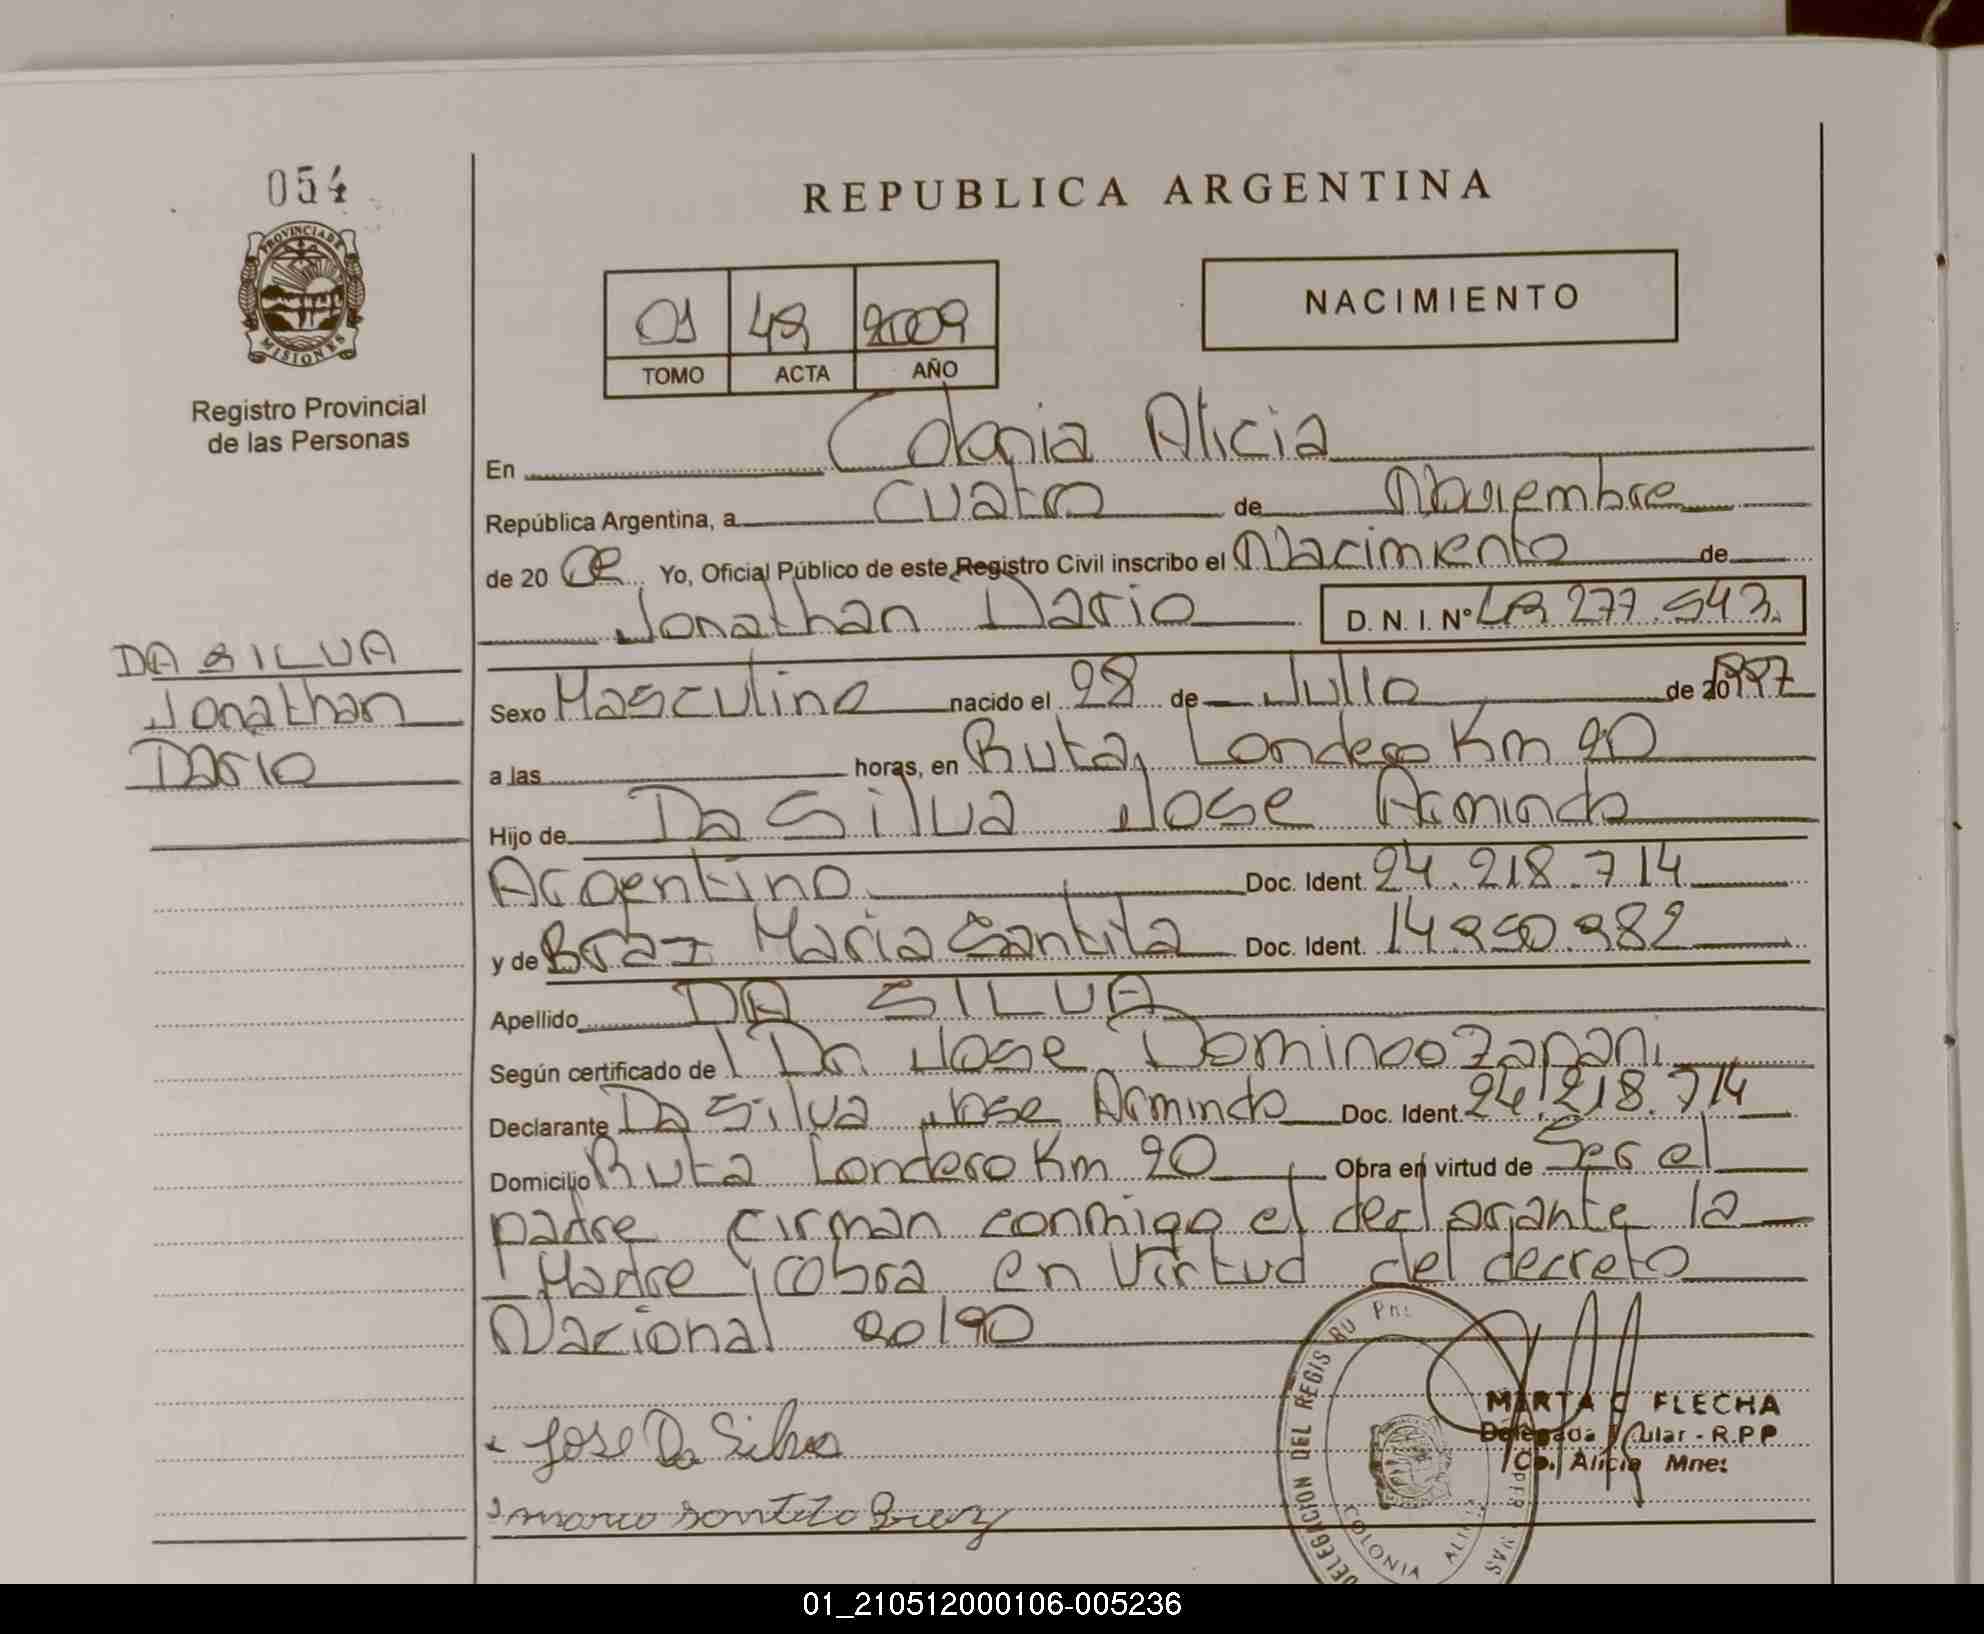 054
PROVINCIA DE
MISIONES
Registro Provincial
de las Personas
REPUBLICA ARGENTINA
01 48 2009
TOMO ACTA AÑO
NACIMIENTO
En Colonia Alicia
República Argentina, a Cuatro de Noviembre
de 20 Yo, Oficial Público de este Registro Civil inscribo el Nacimiento de
Jonathan Dario D. N. I. Nº 277.543
DA SILVA
Jonathan
Dario
Sexo Masculino nacido el 28 de Julio de 20 1997
a las horas, en Ruta Londero Km 20
Hijo de Da Silva Jose Armindo
Argentino Doc. Ident. 24.218.714
y de Braz Maria Santita Doc. Ident. 14.950.982
Apellido DA SILVA
Según certificado de Dr. Jose Domingo Zapani
Declarante Da Silva Jose Armindo Doc. Ident. 24.218.714
Domicilio Ruta Londero Km 20 Obra en virtud de Ser el
padre firman conmigo el declarante la
Madre obra en Virtud del decreto
Nacional 90/90
Jose Da Silva
maria santita Braz
DELEGACION DEL REGISTRO
COLONIA ALICIA
MARTA C FLECHA
Delegada Titular - R.P.P
Co. Alicia Mnes
01_210512000106-005236